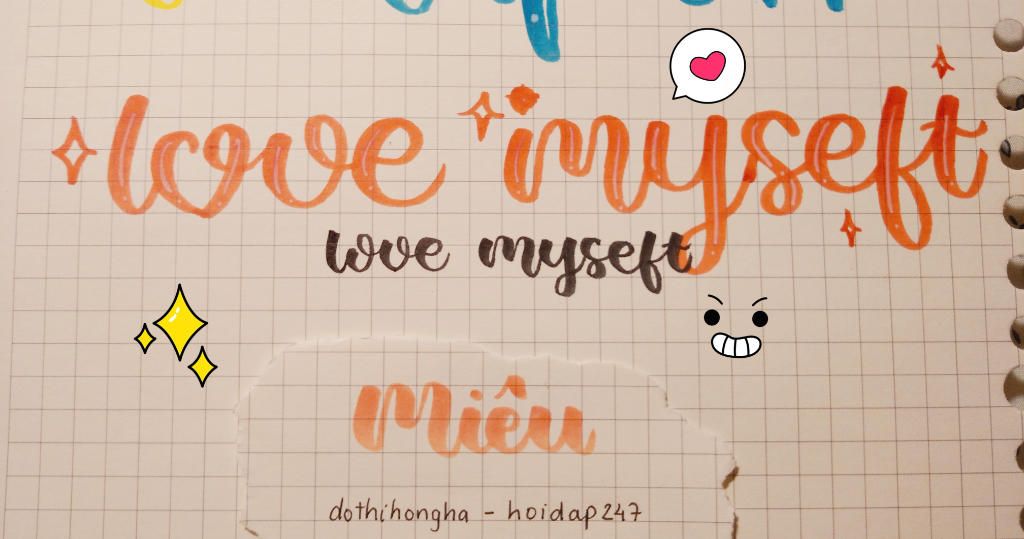 love myseft
love myseft
Miêu
dothihongha - hoidap247